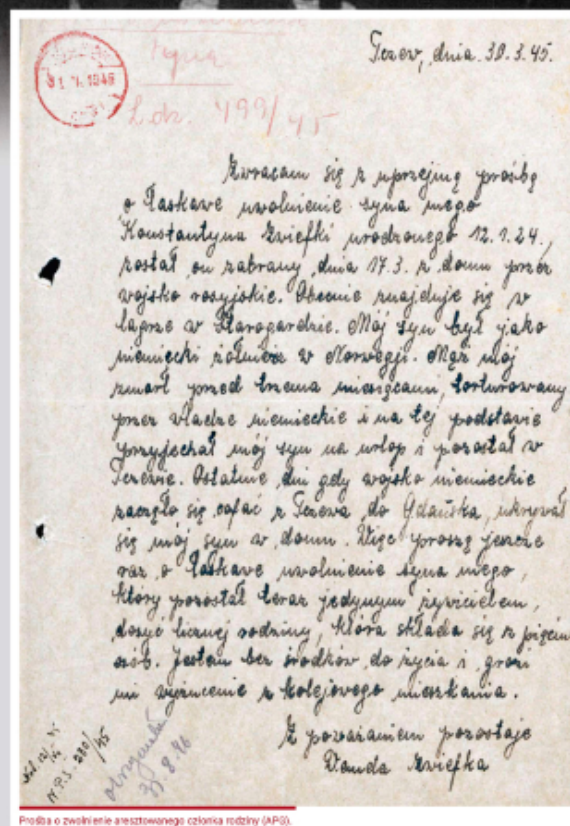 Tczew, dnia 30.3.45.
31
1945
L.dz. 499/45
Zwracam się z uprzejmą prośbą
o łaskawe uwolnienie syna mego
Konstantyna Zwiefki urodzonego 12.1.24.,
został on zabrany dnia 17.3. z domu przez
wojsko rosyjskie. Obecnie znajduje się w
lagrze w Starogardzie. Mój syn był jako
niemiecki żołnierz w Norwegji. Mąż mój
zmarł przed trzema miesiącami, torturowany
przez władze niemieckie i na tej podstawie
przyjechał mój syn na urlop i pozostał w
Tczewie. Ostatnie dni gdy wojsko niemieckie
zaczęło się cofać z Tczewa do Gdańska, ukrywał
się mój syn w domu. Więc proszę jeszcze
raz o łaskawe uwolnienie syna mego,
który pozostał teraz jedynym żywicielem,
dosyć licznej rodziny, która składa się z pięciu
osób. Jestem bez środków do życia i grozi
mi wyrzucenie z kolejowego mieszkania.
Z poważaniem pozostaje
Wanda Zwiefka
Prośba o zwolnienie aresztowanego członka rodziny (APG).